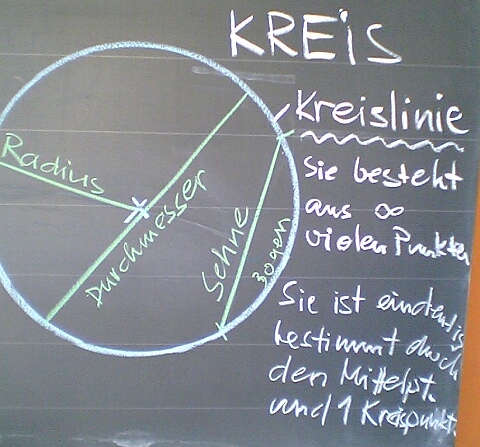 KREIS
Kreislinie
Sie besteht
aus ∞
vielen Punkten
Sie ist eindeutig
bestimmt durch
den Mittelpt.
und 1 Kreispunkt.
Radius
Durchmesser
Sehne
Bogen